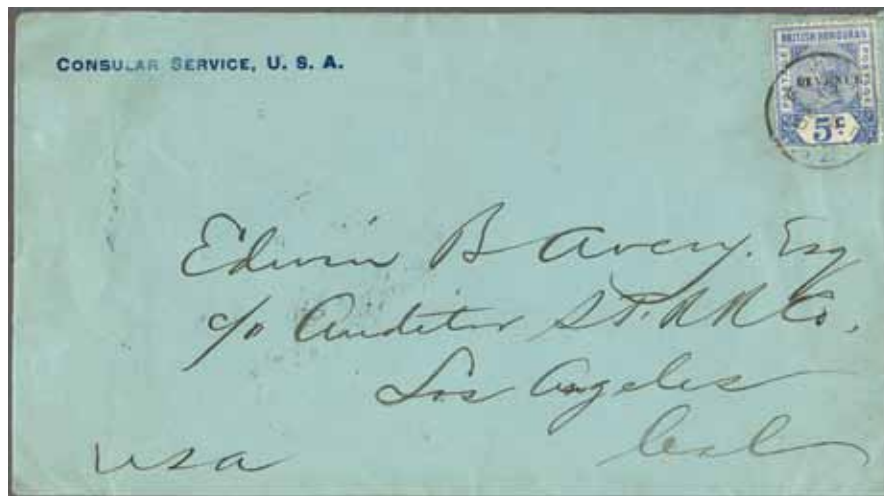 CONSULAR SERVICE, U. S. A.
BRITISH HONDURAS
POSTAGE
REVENUE
POSTAGE
5 c.
Edwin B Avery. Esq
c/o Auditor S. P. R R Co.
Los Angeles
Cal
USA